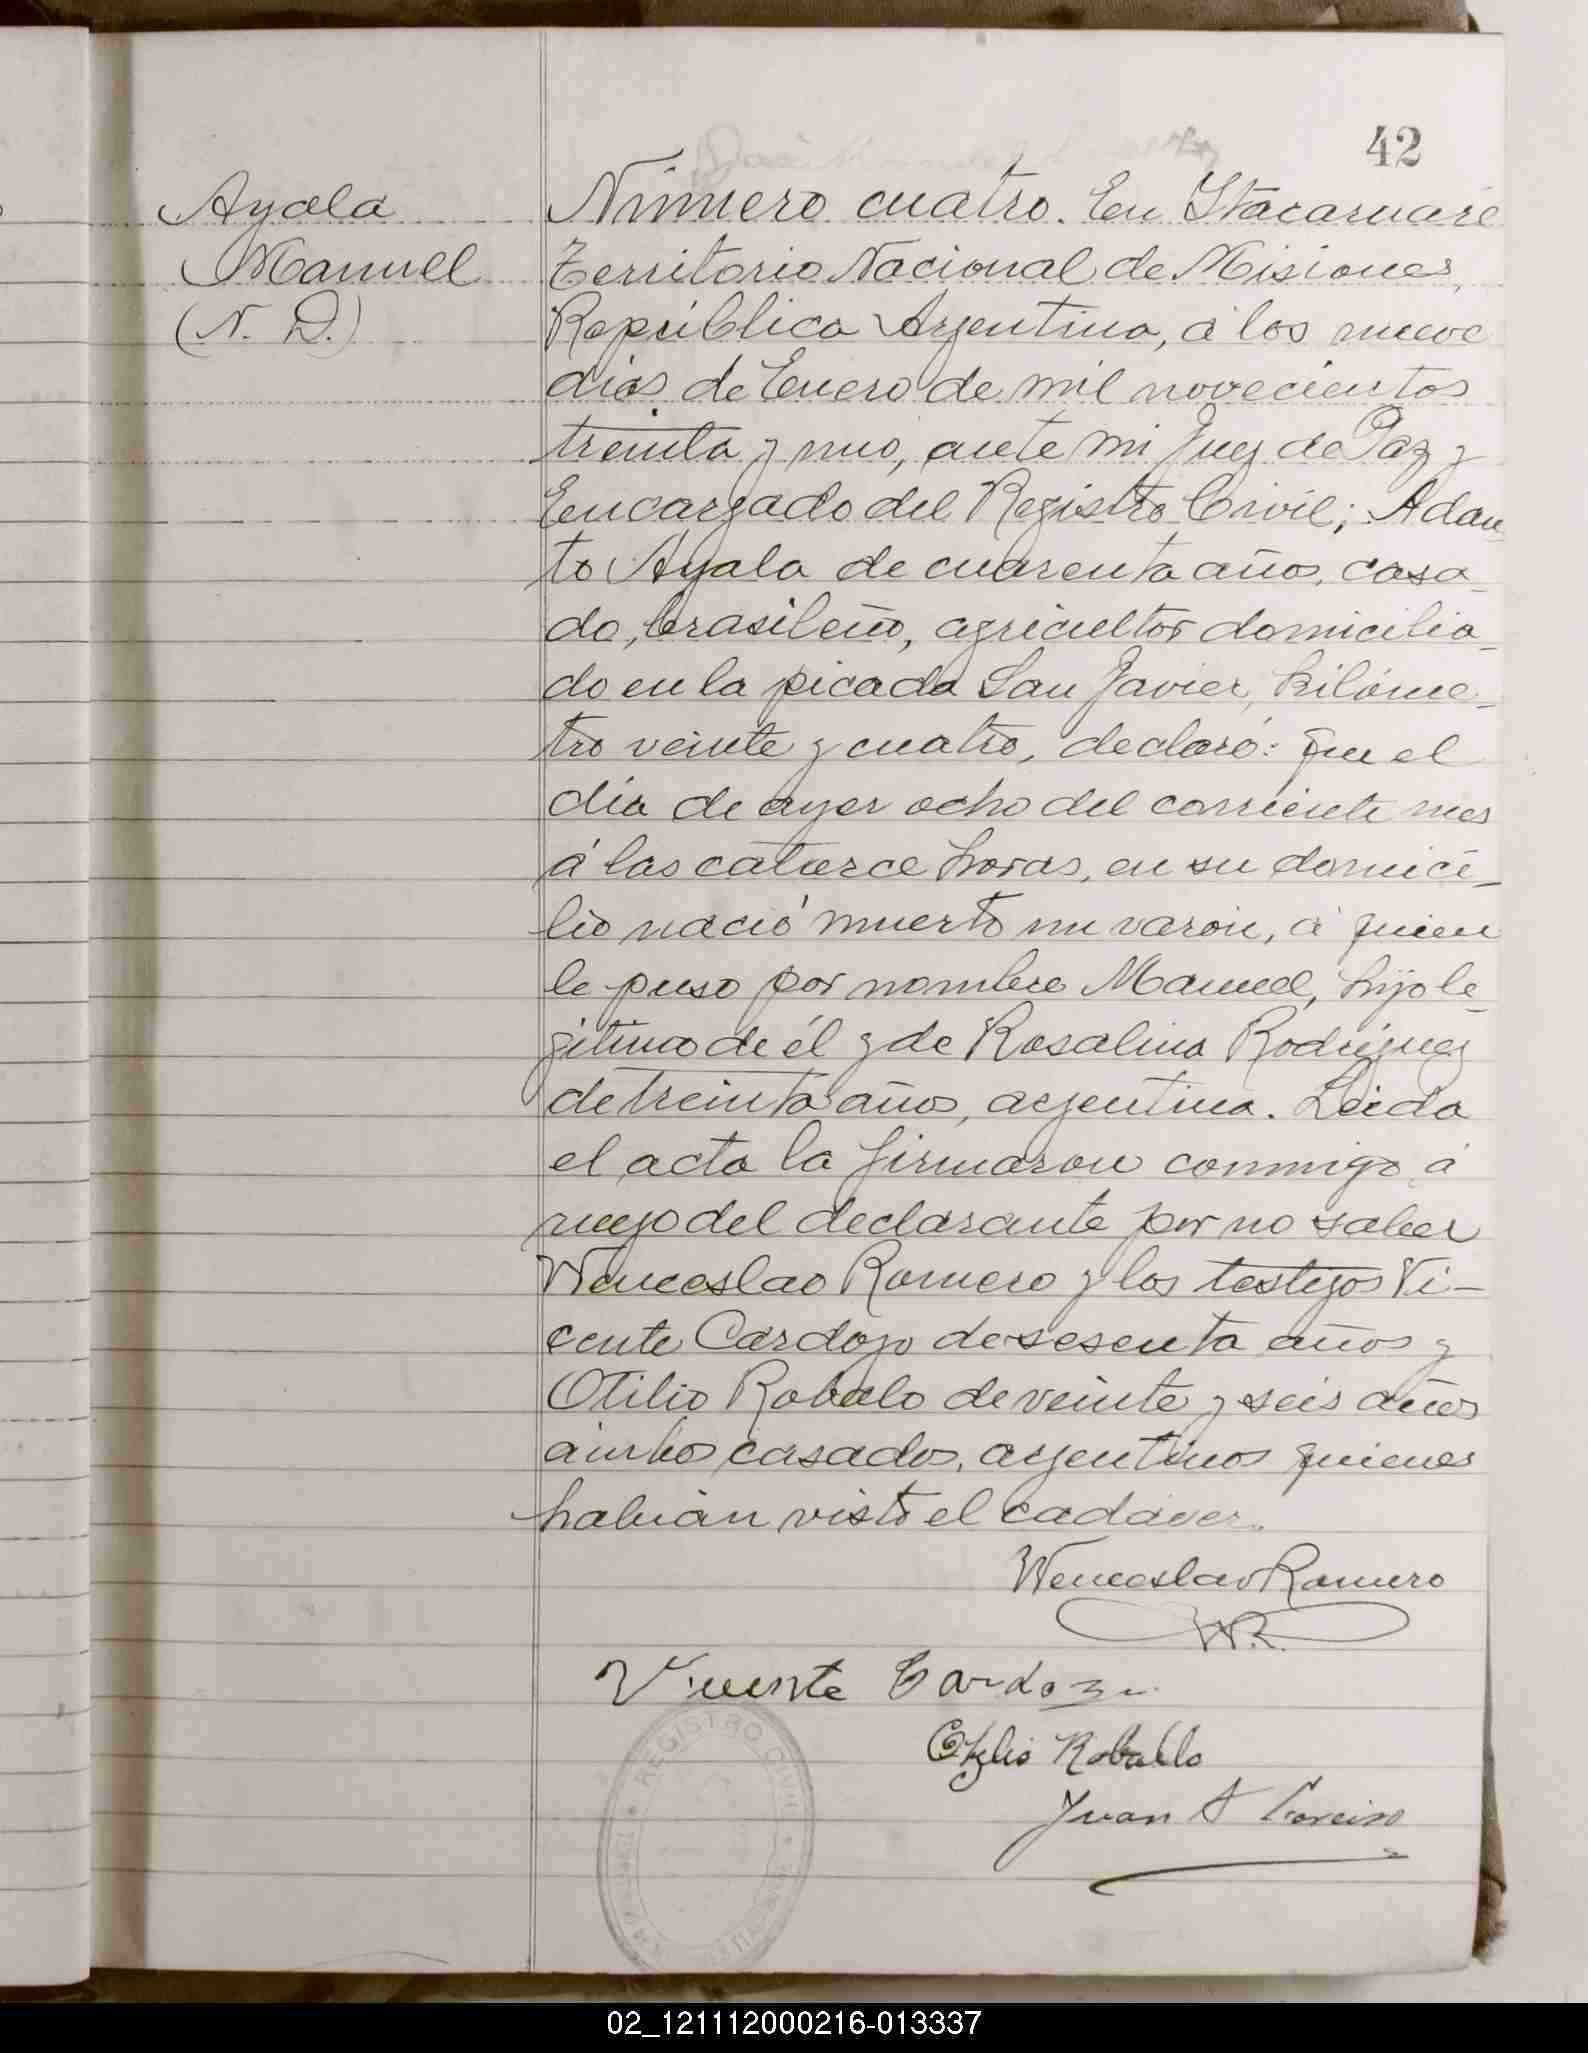 42
Ayala
Manuel
(N. D.)
Número cuatro. En Itacaruaré
Territorio Nacional de Misiones,
República Argentina, á los nueve
dias de Enero de mil novecientos
treinta y uno, ante mi Juez de Paz y
Encargado del Registro Civil; Adan
to Ayala de cuarenta años, casa_
do, brasileño, agricultor domicilia_
do en la picada San Javier, kilóme_
tro veinte y cuatro, declaró: Que el
día de ayer ocho del corriente mes
á las catorce horas, en su domici_
lio nació muerto un varón, á quien
le puso por nombre Manuel, hijo le_
gitimo de él y de Rosalina Rodriguez
de treinta años, argentina. Leida
el acta la firmaron conmigo, á
ruego del declarante por no saber
Wenceslao Romero y los testigos Vi-
cente Cardozo de sesenta años y
Otilio Robalo de veinte y seis años
ambos casados, argentinos quienes
habían visto el cadáver.
Wenceslao Romero
W.R.
Vicente Cardozo
Otilio Roballo
Juan A
REGISTRO CIVIL
02_121112000216-013337